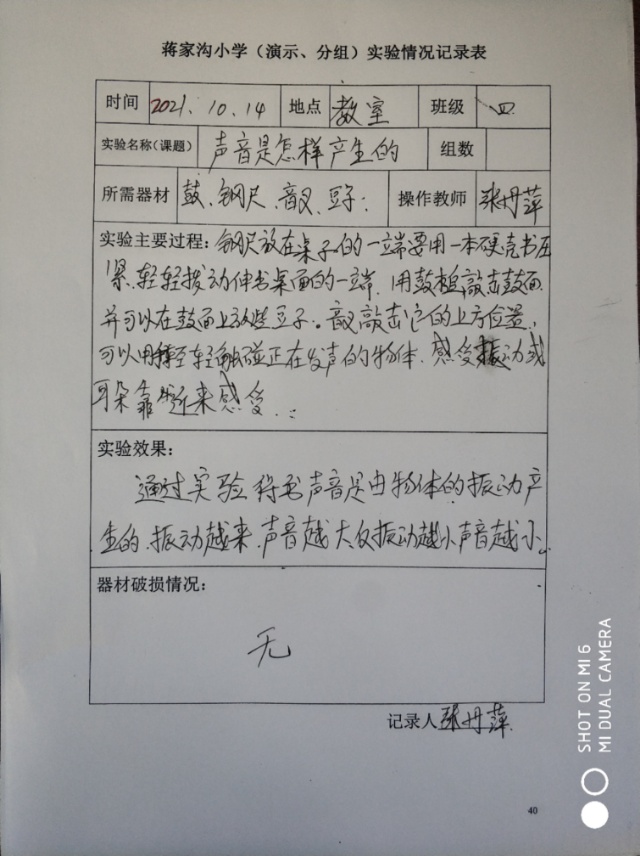 蒋家沟小学（演示、分组）实验情况记录表
时间 2021.10.14 地点 教室 班级 四
实验名称（课题） 声音是怎样产生的 组数
所需器材 鼓、钢尺、音叉、豆子： 操作教师 张丹萍
实验主要过程：钢尺放在桌子的一端要用一本硬壳书压
紧、轻轻拨动伸书桌面的一端，用鼓槌敲击鼓面
并可以在鼓面上放些豆子。音叉敲击它的上方位置，
可以用手轻轻触碰正在发声的物体，感受振动或
耳朵靠近来感受．
实验效果：
通过实验得出声音是由物体的振动产
生的、振动越来，声音越大反振动越小声音越小。
器材破损情况：
无
记录人 张丹萍
40
SHOT ON MI 6
MI DUAL CAMERA